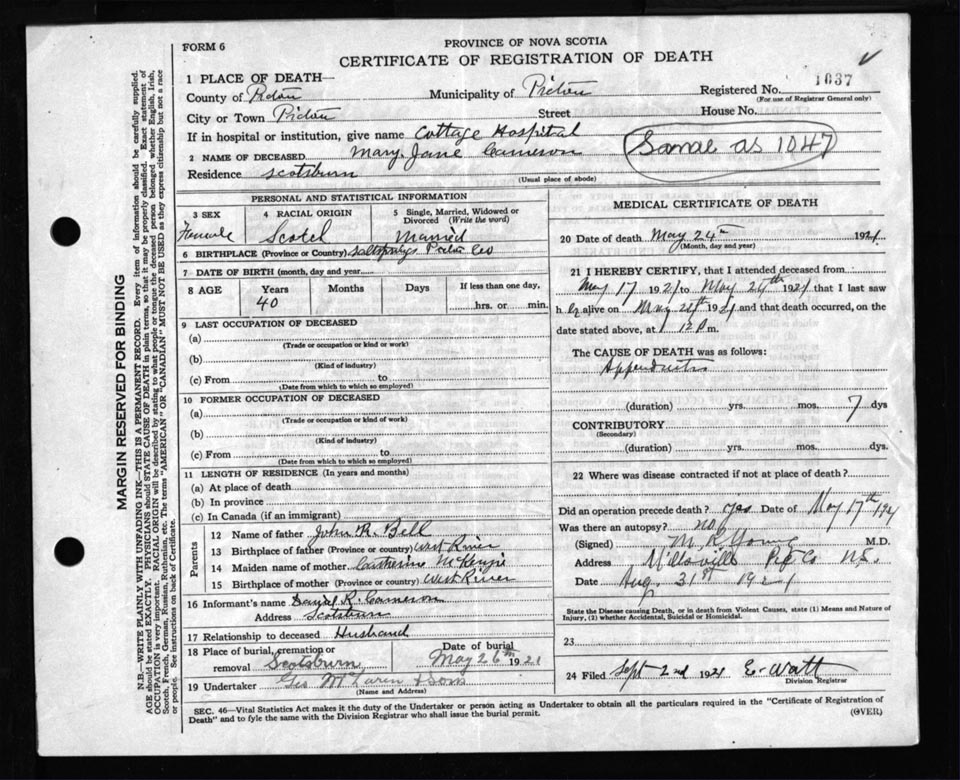 FORM 6
PROVINCE OF NOVA SCOTIA
CERTIFICATE OF REGISTRATION OF DEATH
1 PLACE OF DEATH—
County of Pictou Municipality of Pictou Registered No. 1037
(For use of Registrar General only)
City or Town Pictou Street House No.
If in hospital or institution, give name Cottage Hospital
2 NAME OF DECEASED Mary Jane Cameron
Same as 1047
Residence Scotsburn
(Usual place of abode)
PERSONAL AND STATISTICAL INFORMATION
3 SEX 4 RACIAL ORIGIN 5 Single, Married, Widowed or Divorced (Write the word)
Female Scotch Married
6 BIRTHPLACE (Province or Country) Pictou Co
7 DATE OF BIRTH (month, day and year)
8 AGE Years Months Days If less than one day,
40 hrs. or min.
9 LAST OCCUPATION OF DECEASED
(a)
(Trade or occupation or kind or work)
(b)
(Kind of industry)
(c) From to
(Date from which to which so employed)
10 FORMER OCCUPATION OF DECEASED
(a)
(Trade or occupation or kind of work)
(b)
(Kind of industry)
(c) From to
(Date from which to which so employed)
11 LENGTH OF RESIDENCE (In years and months)
(a) At place of death
(b) In province
(c) In Canada (if an immigrant)
Parents
12 Name of father John R. Bell
13 Birthplace of father (Province or country) West River
14 Maiden name of mother Catherine McKenzie
15 Birthplace of mother (Province or country) West River
16 Informant's name Daniel R. Cameron
Address Scotsburn
17 Relationship to deceased Husband
18 Place of burial, cremation or removal Scotsburn
Date of burial
May 26th 1921
19 Undertaker Geo McLaren & Sons
(Name and Address)
MEDICAL CERTIFICATE OF DEATH
20 Date of death May 24th 1921
(Month, day and year)
21 I HEREBY CERTIFY, that I attended deceased from
May 17 1921 to May 24th 1921 that I last saw
h er alive on May 24th 1921 and that death occurred, on the
date stated above, at 12 P.m.
The CAUSE OF DEATH was as follows:
Appendicitis
(duration) yrs. mos. 7 dys
CONTRIBUTORY
(Secondary)
(duration) yrs. mos. dys.
22 Where was disease contracted if not at place of death?
Did an operation precede death? yes Date of May 17th 1921
Was there an autopsy? no
(Signed) M R Young M.D.
Address Millsville Pic Co N.S.
Date Aug. 31st 1921
State the Disease causing Death, or in death from Violent Causes, state (1) Means and Nature of Injury, (2) whether Accidental, Suicidal or Homicidal.
23
24 Filed Sept 2nd 1921 E. Watt
Division Registrar
SEC. 46—Vital Statistics Act makes it the duty of the Undertaker or person acting as Undertaker to obtain all the particulars required in the "Certificate of Registration of
Death" and to fyle the same with the Division Registrar who shall issue the burial permit.
(OVER)
MARGIN RESERVED FOR BINDING
N.B.—WRITE PLAINLY WITH UNFADING INK—THIS IS A PERMANENT RECORD. Every item of information should be carefully supplied.
AGE should be stated EXACTLY. PHYSICIANS should STATE CAUSE OF DEATH in plain terms, so that it may be properly classified. Exact statement of
OCCUPATION is very important. RACIAL ORIGIN will be described by stating to what people or tongue the deceased person belonged whether English, Irish,
Scotch, French, German, Russian, Ruthenian, etc. The terms "AMERICAN" OR "CANADIAN" MUST NOT BE USED as they express citizenship but not a race
or people. See instructions on back of Certificate.